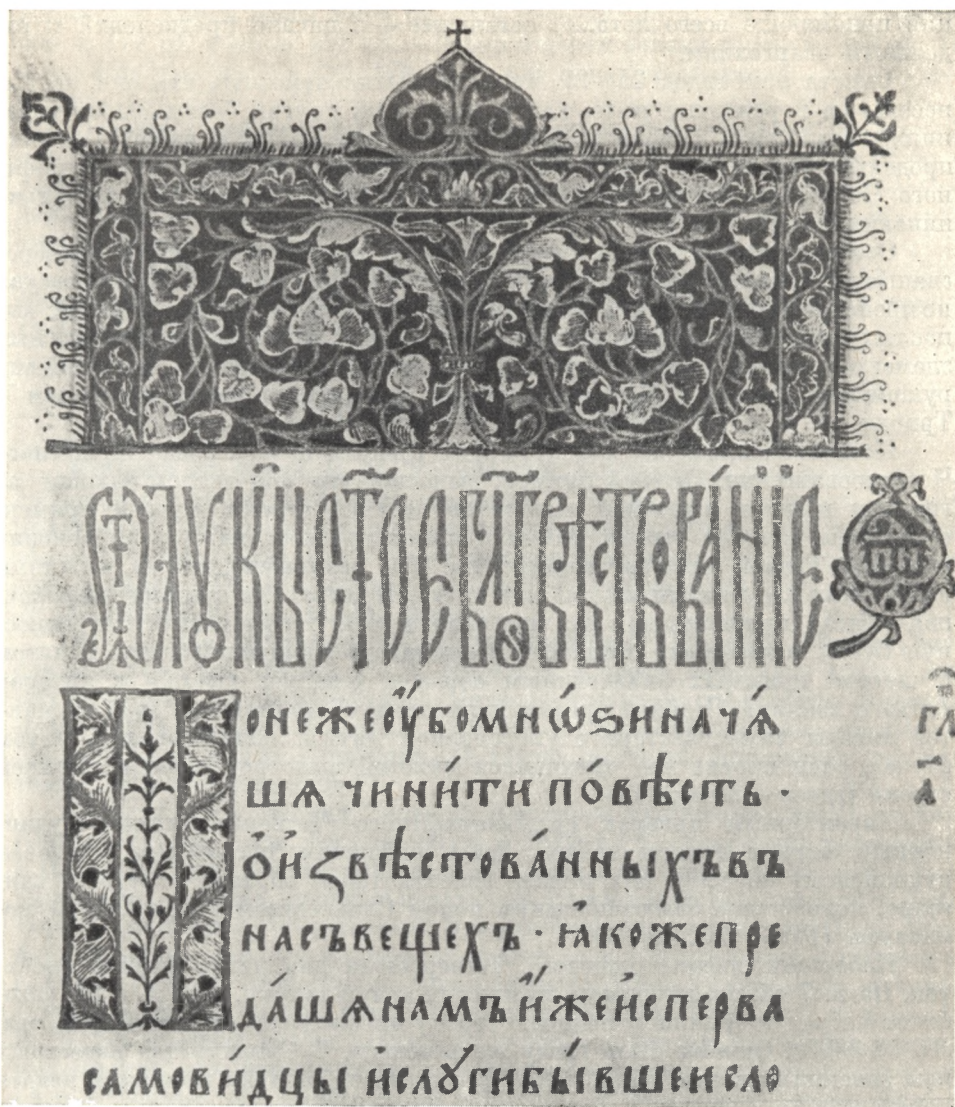 Ѿ лꙋкы ст҃ое бл҃говѣствованїе
Понеже оу҆бо мнѡѕи начѧ́
шѧ чини́ти по́вѣсть ·
о҆ и҆звѣстова́нныхъ въ
насъ вещехъ · ꙗ҆коже пре
да́шѧ намъ и҆̀же и҆сперва
самови́дцы и҆ слꙋги бы́вшеи сло
гл҃
а҃